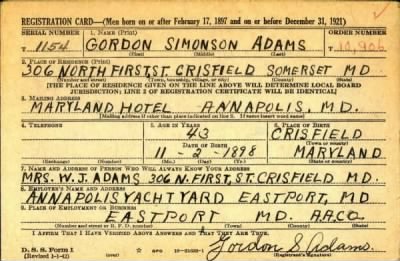 REGISTRATION CARD—(Men born on or after February 17, 1897 and on or before December 31, 1921)
SERIAL NUMBER 1. NAME (Print) ORDER NUMBER
T 1154 GORDON SIMONSON ADAMS T 10,906
(First) (Middle) (Last)
2. PLACE OF RESIDENCE (Print)
306 NORTH FIRST, ST. CRISFIELD SOMERSET MD.
(Number and street) (Town, township, village, or city) (County) (State)
[THE PLACE OF RESIDENCE GIVEN ON THE LINE ABOVE WILL DETERMINE LOCAL BOARD
JURISDICTION; LINE 2 OF REGISTRATION CERTIFICATE WILL BE IDENTICAL]
3. MAILING ADDRESS
MARYLAND HOTEL ANNAPOLIS, MD.
[Mailing address if other than place indicated on line 2. If same insert word same]
4. TELEPHONE 5. AGE IN YEARS 6. PLACE OF BIRTH
43 CRISFIELD
DATE OF BIRTH (Town or county)
11-2-1898 MARYLAND
(Exchange) (Number) (Mo.) (Day) (Yr.) (State or country)
7. NAME AND ADDRESS OF PERSON WHO WILL ALWAYS KNOW YOUR ADDRESS
MRS. W. J. ADAMS 306 N. FIRST, ST. CRISFIELD MD.
8. EMPLOYER'S NAME AND ADDRESS
ANNAPOLIS YACHT YARD EASTPORT, MD.
9. PLACE OF EMPLOYMENT OR BUSINESS
EASTPORT MD. AA.CO.
(Number and street or R. F. D. number) (Town) (County) (State)
I AFFIRM THAT I HAVE VERIFIED ABOVE ANSWERS AND THAT THEY ARE TRUE.
D. S. S. Form 1
(Revised 1-1-42) (over) Gordon S. Adams
(Registrant's signature)